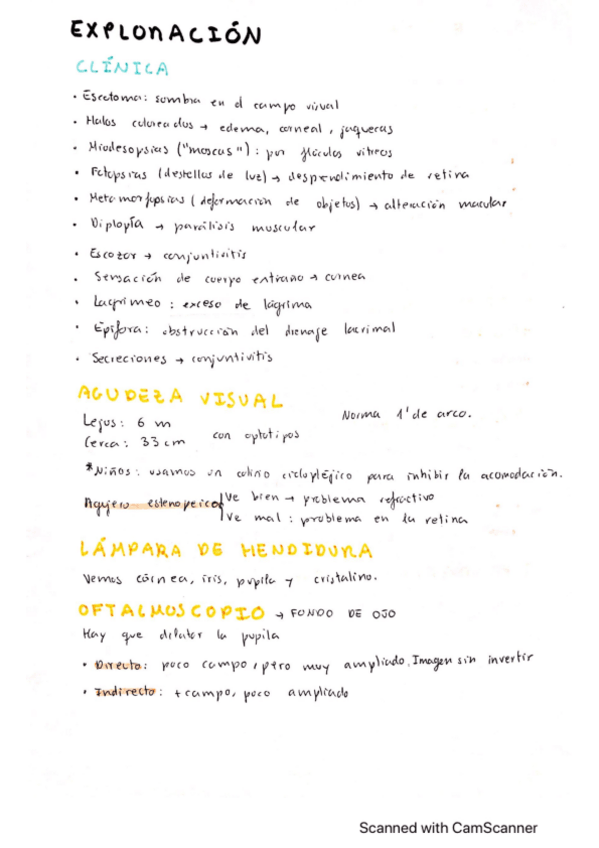 EXPLORACIÓN
CLÍNICA
· Escotoma: sombra en el campo visual
· Halos coloreados → edema, corneal, jaquecas
· Miodesopsias ("moscas"): por flóculos vítreos
· Fotopsias (destellos de luz) → desprendimiento de retina
· Metamorfopsias (deformación de objetos) → alteración macular
· Diplopía → parálisis muscular
· Escozor → conjuntivitis
· Sensación de cuerpo extraño → cornea
· Lagrimeo : exceso de lágrima
· Epífora: obstrucción del drenaje lacrimal
· Secreciones → conjuntivitis
AGUDEZA VISUAL
Lejos: 6 m
Cerca: 33 cm con optotipos
Norma 1' de arco.
*Niños: usamos un colirio ciclopléjico para inhibir la acomodación.
Agujero estenopeico Ve bien → problema refractivo
Ve mal : problema en la retina
LÁMPARA DE HENDIDURA
Vemos córnea, iris, pupila y cristalino.
OFTALMOSCOPIO → FONDO DE OJO
Hay que dilatar la pupila
· Directo: poco campo, pero muy ampliado. Imagen sin invertir
· Indirecto: + campo, poco ampliado
Scanned with CamScanner